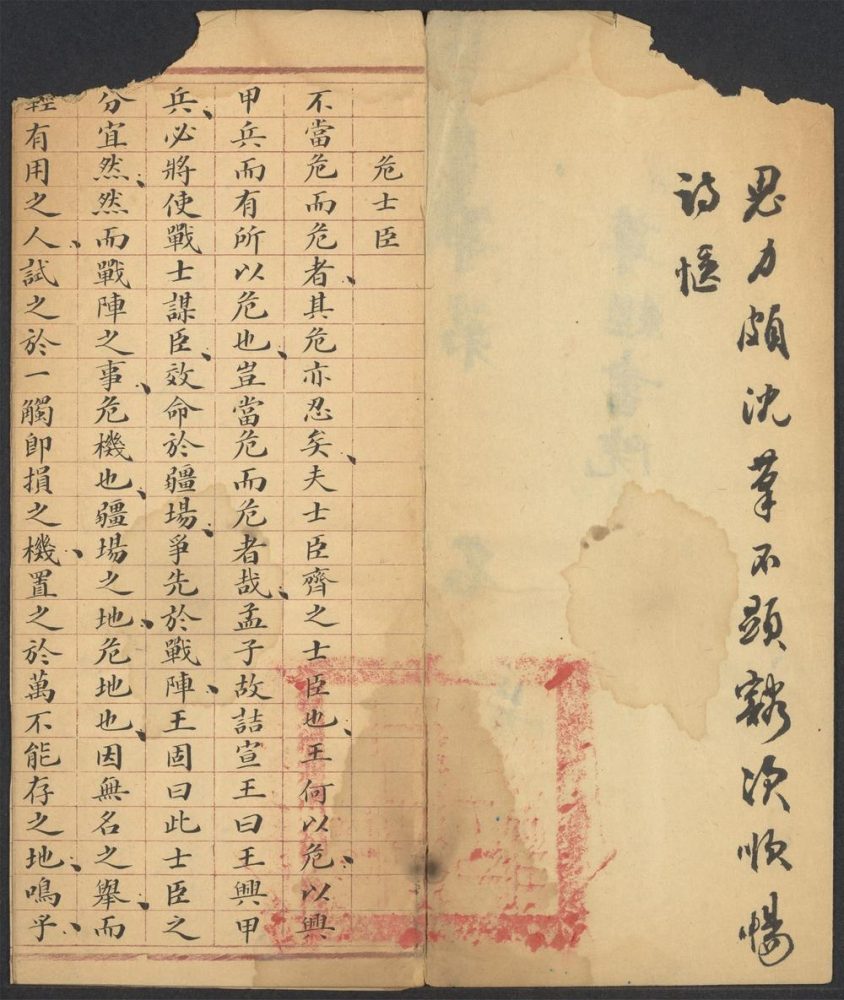 思力頗沈筆不顯豁次順暢
詩愜
危士臣
不當危而危者其危亦忍矣夫士臣齊之士臣也王何以危以興
甲兵而有所以危也豈當危而危者哉孟子故詰宣王曰王興甲
兵必將使戰士謀臣效命於疆場爭先於戰陣王固曰此士臣之
分宜然然而戰陣之事危機也疆場之地危地也因無名之舉而
輕有用之人試之於一觸卽損之機置之於萬不能存之地鳴乎